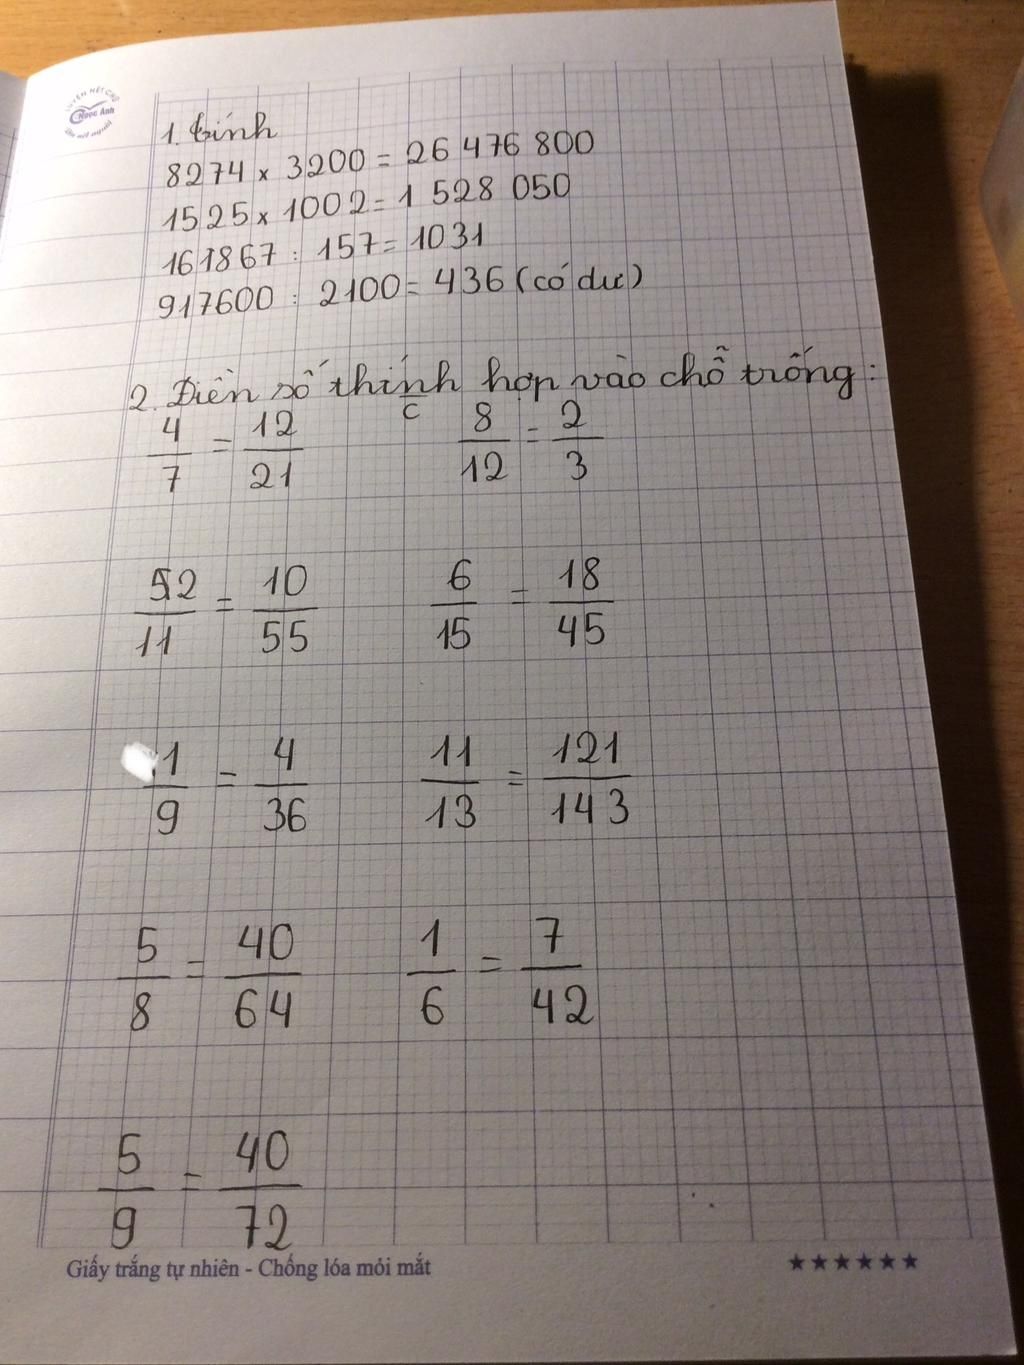 LUYỆN NÉT CHỮ
Ngọc Ánh
1. tính
8274 x 3200 = 26 476 800
1525 x 1002 = 1 528 050
161867 : 157 = 1031
917600 : 2100 = 436 (có dư)
2. Điền số thính hợp vào chỗ trống:
c
4/7 = 12/21 8/12 = 2/3
2/11 = 10/55 6/15 = 18/45
1/9 = 4/36 11/13 = 121/143
5/8 = 40/64 1/6 = 7/42
5/9 = 40/72
Giấy trắng tự nhiên - Chống lóa mỏi mắt ★★★★★★